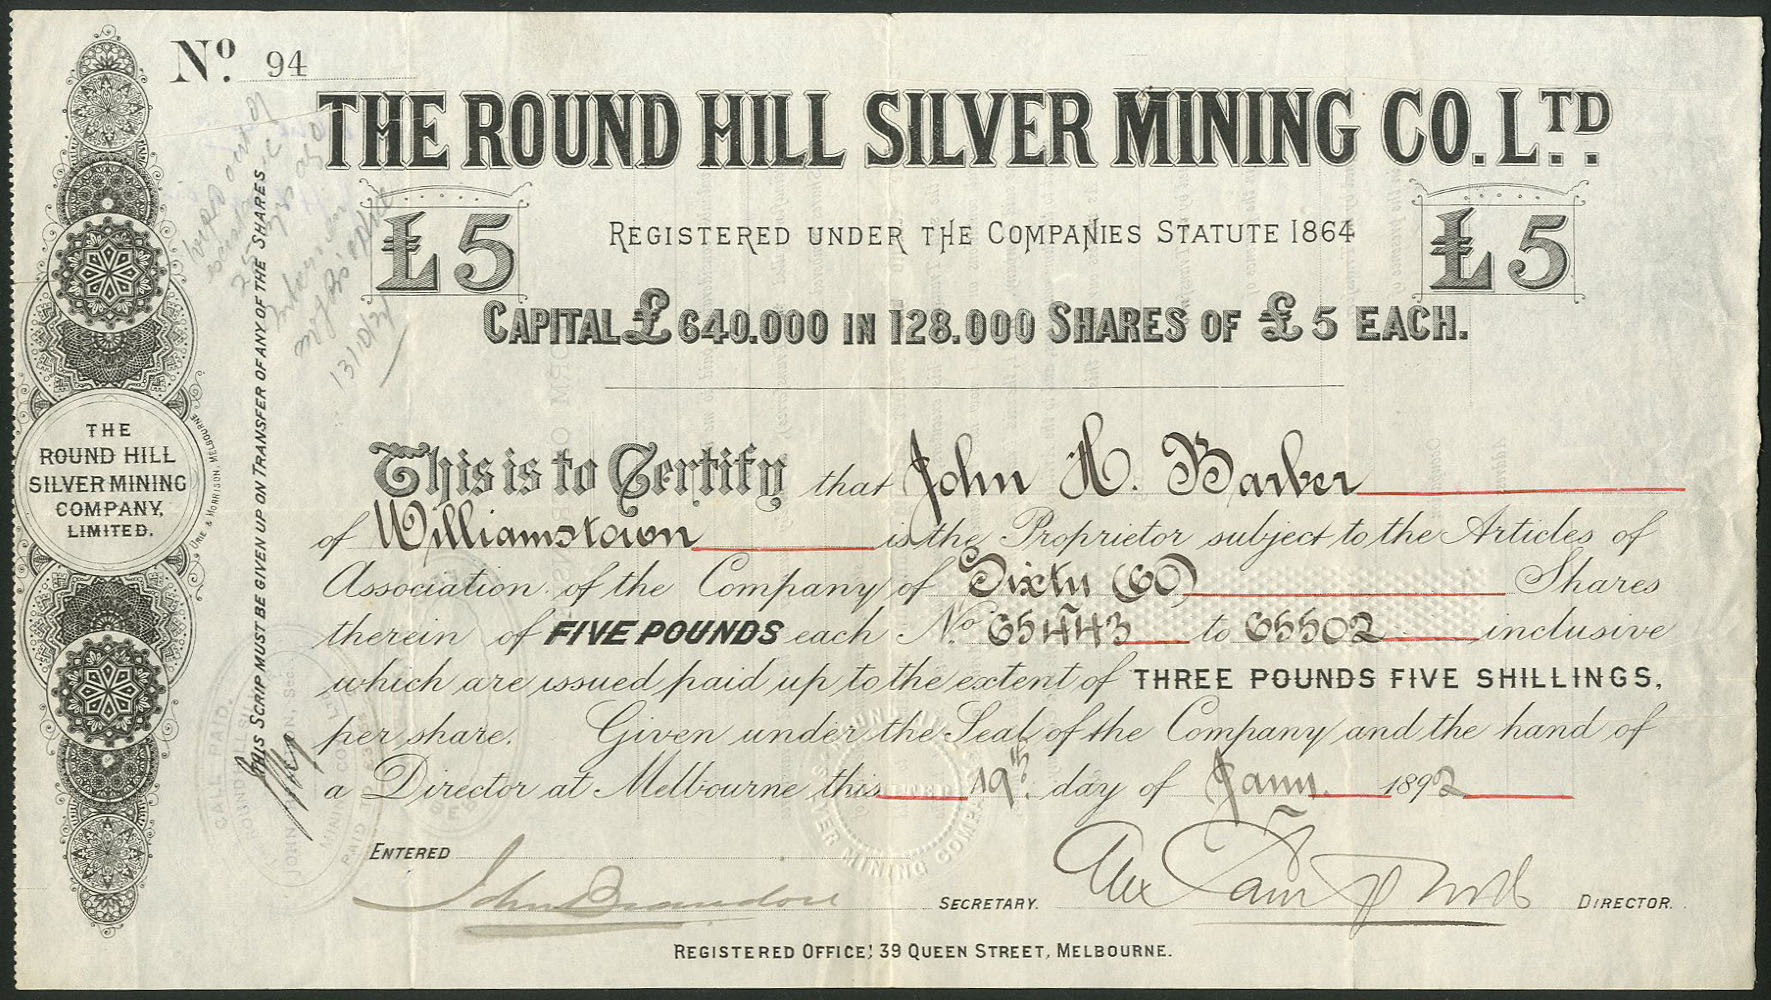 No. 94
THE ROUND HILL SILVER MINING CO. LTD.
£5
REGISTERED UNDER THE COMPANIES STATUTE 1864
£5
CAPITAL £640.000 IN 128.000 SHARES OF £5 EACH.
This is to Certify that John H. Barber
of Williamstown is the Proprietor subject to the Articles of
Association of the Company of Sixty (60) Shares
therein of FIVE POUNDS each No. 65443 to 65502 inclusive
which are issued paid up to the extent of THREE POUNDS FIVE SHILLINGS,
per share. Given under the Seal of the Company and the hand of
a Director at Melbourne this 19th day of Jany. 1892
ENTERED
John Brandon SECRETARY.
DIRECTOR.
REGISTERED OFFICE; 39 QUEEN STREET, MELBOURNE.
THE
ROUND HILL
SILVER MINING
COMPANY,
LIMITED.
THIS SCRIP MUST BE GIVEN UP ON TRANSFER OF ANY OF THE SHARES.
MELBOURNE
13/10/21
CALL PAID.
ROUND HILL
MINING CO
MINING COMP